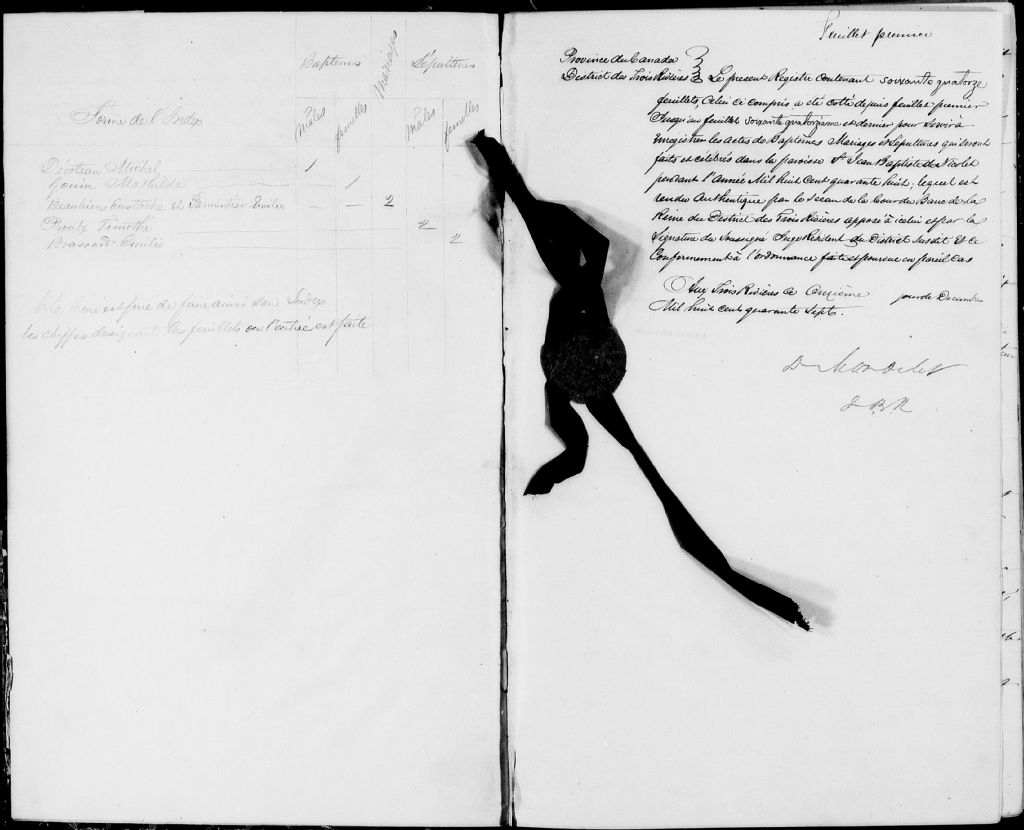 Baptêmes Mariages Sépultures
Forme de l'Index mâles femelles mâles femelles
Michel 1
Mathilde 1
Beaulieu Eustache et Parmentier Emilie 2
Proulx Timothé 2
Brassard Emilie 2
M. le Curé est prié de faire ainsi son Index
les chiffres désignant les feuillets ou l'entrée est faite
Feuillet premier
Province du Canada
District des Trois Rivières Le présent Registre contenant soixante quatorze
feuillets, celui ci compris a été cotté depuis feuillet premier
Jusqu'au feuillet soixante quatorzième et dernier pour servir à
enregistrer les actes de Baptêmes Mariages et Sépultures qui seront
faits et célébrés dans la paroisse St. Jean Baptiste de Nicolet
pendant l'Année Mil huit cent quarante huit; lequel est
rendu authentique par le Sceau de la Cour du Banc de la
Reine du District des Trois Rivières apposé à icelui et par la
Signature du Soussigné Juge Résident du District susdit Et ce
Conformément à l'ordonnance faite et pourvue en pareil cas
Aux Trois Rivières ce Onzième jour de Décembre
Mil huit cent quarante Sept.
D. Mondelet
J B R